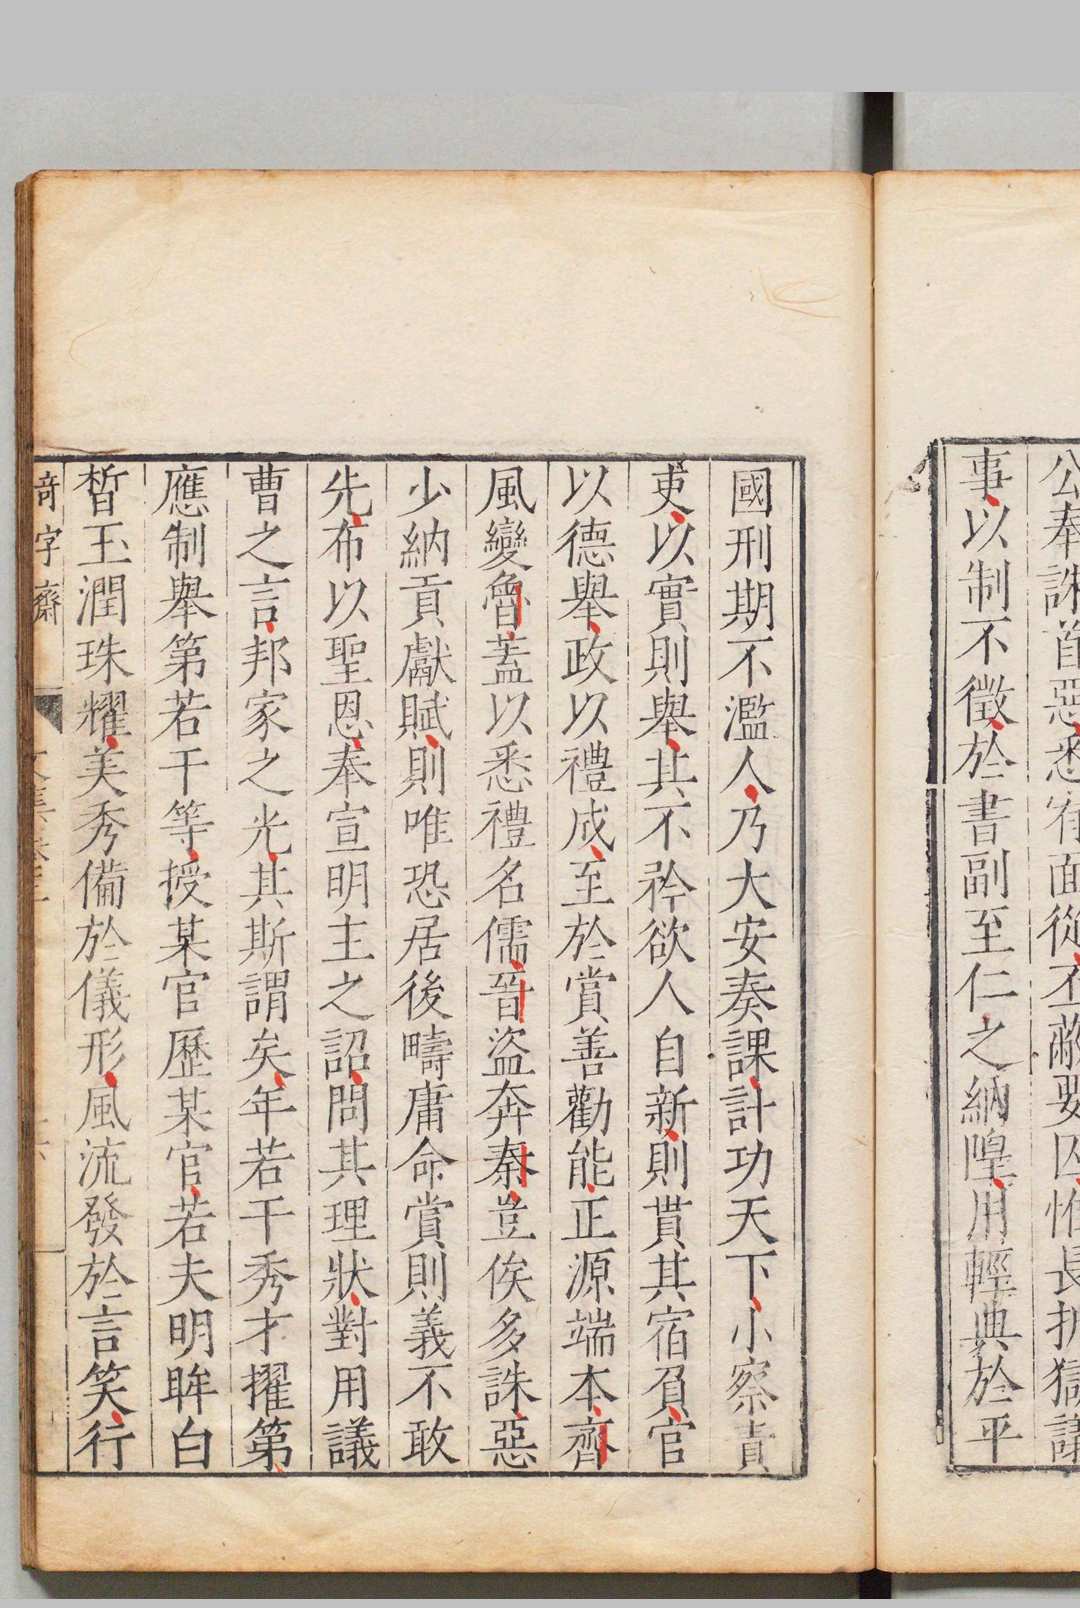 事以制不徵於書副至仁之納隍用輕典於平
國刑期不濫人乃大安奏課計功天下小察責
吏以實則舉其不矜欲人自新則貰其宿負官
以德舉政以禮成至於賞善勸能正源端本齊
風變魯蓋以悉禮名儒晉盜奔秦豈俟多誅惡
少納貢獻賦則唯恐居後疇庸命賞則義不敢
先布以聖恩奉宣明主之詔問其理狀對用議
曹之言邦家之光其斯謂矣年若干秀才擢第
應制舉第若干等授某官歷某官若夫明眸白
皙玉潤珠耀美秀備於儀形風流發於言笑行